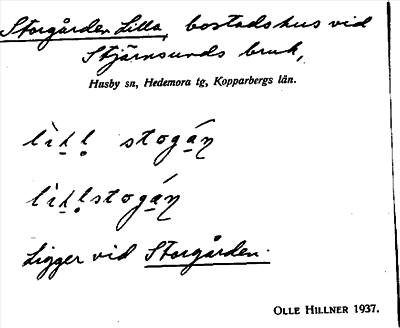 Storgården Lilla, bostadshus vid
Stjärnsunds bruk,
Husby sn, Hedemora tg, Kopparbergs län.
Ligger vid Storgården.
OLLE HILLNER 1937.